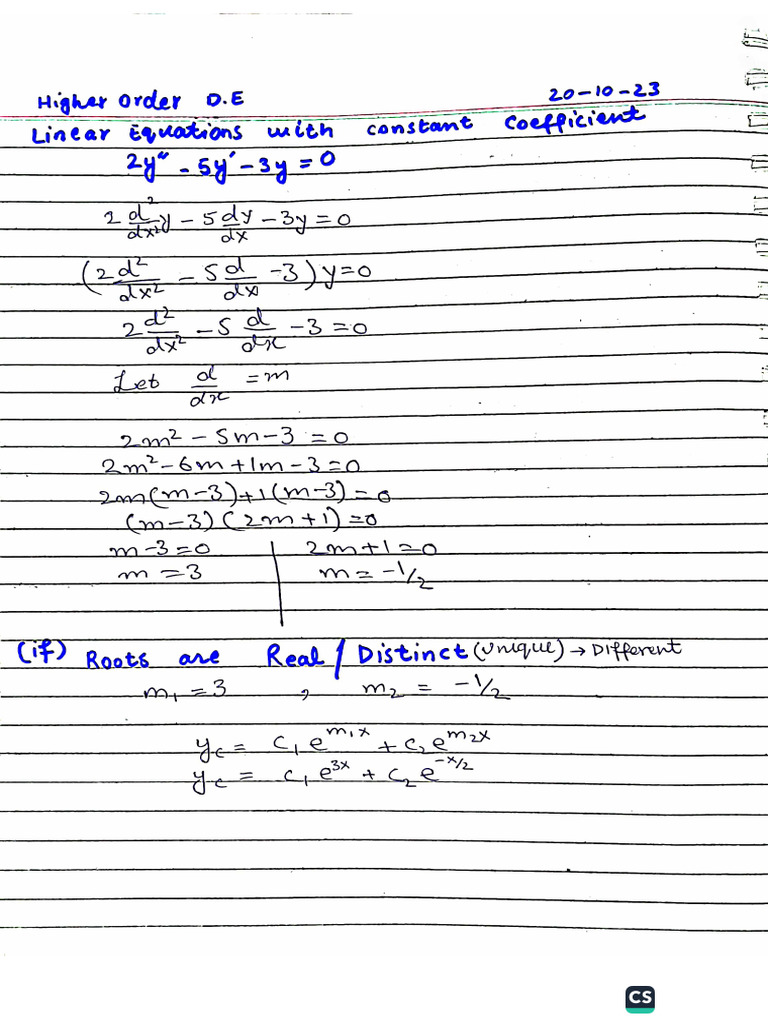 Higher Order D.E 20-10-23
Linear Equations with constant Coefficient
2y" - 5y' - 3y = 0
2 d²/dx² y - 5 dy/dx - 3y = 0
(2 d²/dx² - 5 d/dx - 3) y = 0
2 d²/dx² - 5 d/dx - 3 = 0
Let d/dx = m
2m² - 5m - 3 = 0
2m² - 6m + 1m - 3 = 0
2m(m-3) + 1(m-3) = 0
(m-3) (2m+1) = 0
m-3=0 | 2m+1=0
m = 3 | m = -1/2
(if) Roots are Real / Distinct (unique) → Different
m₁ = 3 , m₂ = -1/2
y_c = c₁ e^{m₁x} + c₂ e^{m₂x}
y_c = c₁ e^{3x} + c₂ e^{-x/2}
CS